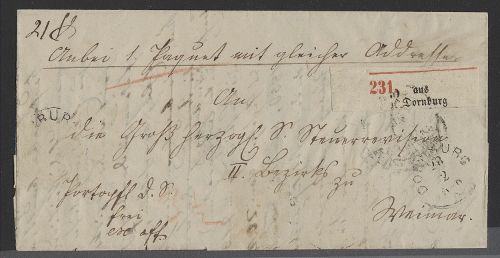 21 ℔
Anbei 1 Paquet mit gleicher Addresse
231 aus
Dornburg
An
RUP
die Großherzogl. S. Steuerrevision
II. Bezirks
zu
DORNBURG
Portopfl. D. S.
frei
Weimar.